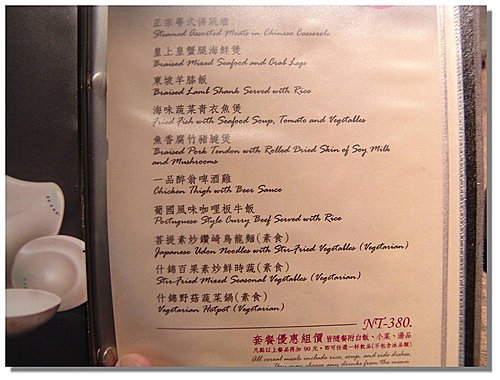 正宗粵式佛跳牆
Steamed Assorted Meats in Chinese Casserole
皇上皇蟹腿海鮮煲
Braised Mixed Seafood and Crab Legs
東坡羊膝飯
Braised Lamb Shank Served with Rice
海味蔬菜青衣魚煲
Fried Fish with Seafood Soup, Tomato and Vegetables
魚香腐竹豬腱煲
Braised Pork Tendon with Rolled Dried Skin of Soy Milk
and Mushrooms
一品醉翁啤酒雞
Chicken Thigh with Beer Sauce
葡國風味咖哩板牛飯
Portuguese Style Curry Beef Served with Rice
菩提素炒鑽崎烏龍麵(素食)
Japanese Udon Noodles with Stir-Fried Vegetables (Vegetarian)
什錦百果素炒鮮時蔬(素食)
Stir-Fried Mixed Seasonal Vegetables (Vegetarian)
什錦野菇蔬菜鍋(素食)
Vegetarian Hotpot (Vegetarian)
NT-380.
套餐優惠組價 皆隨餐附白飯、小菜、湯品
凡點以上餐品再加 90 元，即可任選一杯飲品(不包含冰品類)
All cereal meals include rice, soup, and side dishes.
They may choose any drinks from the menu